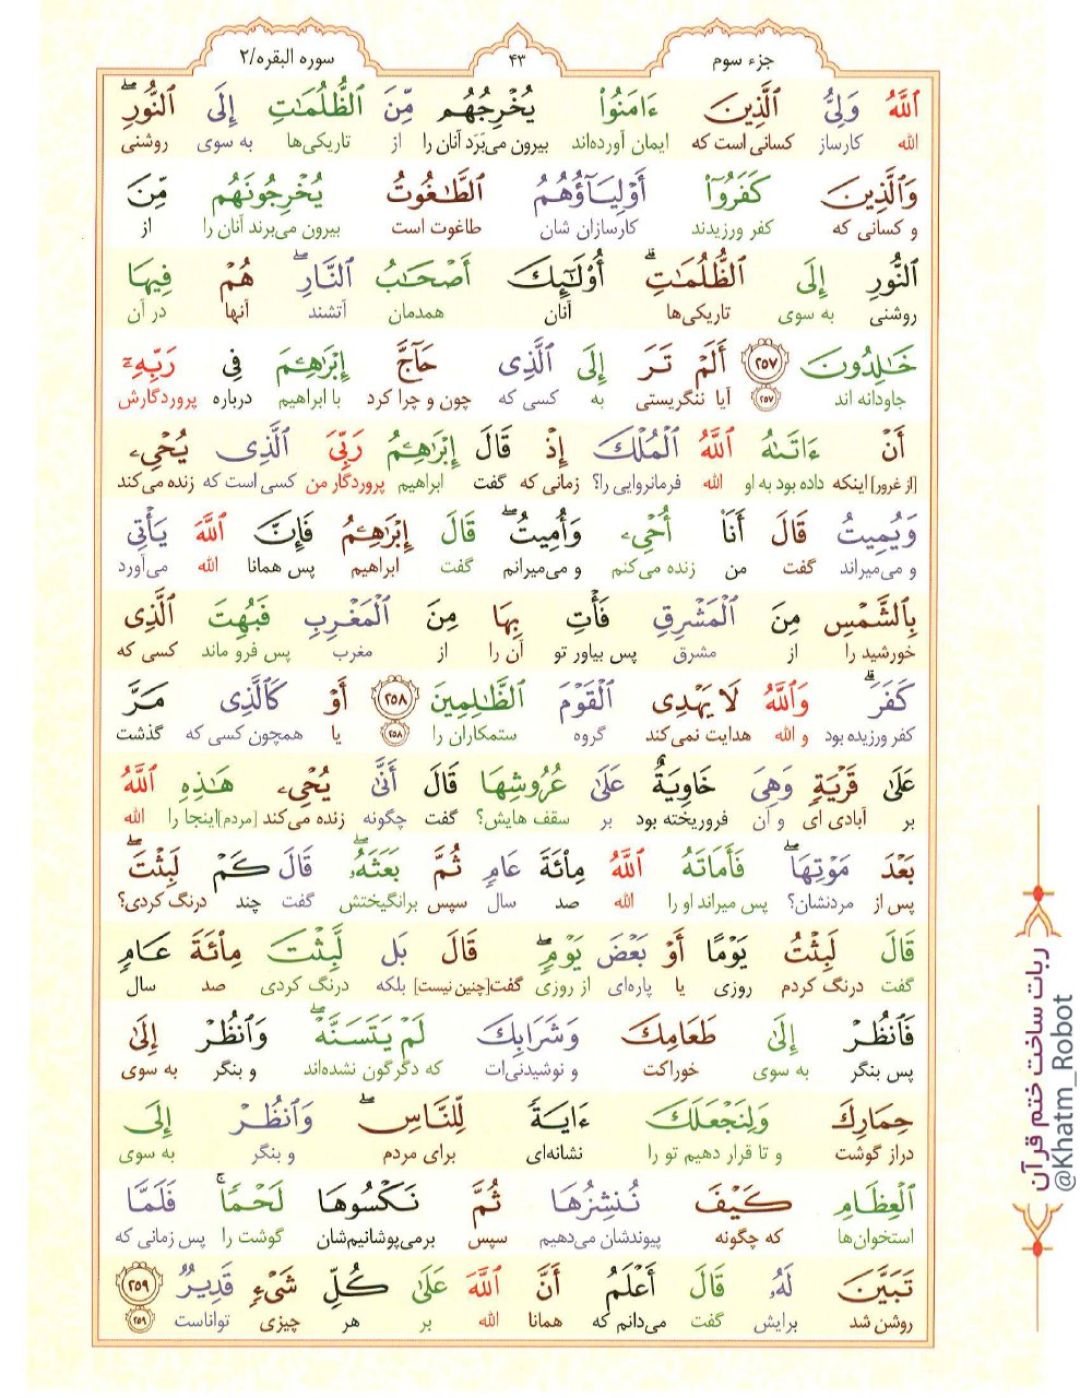 جزء سوم
۴۳
سوره البقره/۲
ٱللَّهُ وَلِيُّ ٱلَّذِينَ ءَامَنُوا۟ يُخْرِجُهُم مِّنَ ٱلظُّلُمَـٰتِ إِلَى ٱلنُّورِ ۖ
الله کارساز کسانی است که ایمان آورده‌اند بیرون می‌بَرَد آنان را از تاریکی‌ها به سوی روشنی
وَٱلَّذِينَ كَفَرُوٓا۟ أَوْلِيَآؤُهُمُ ٱلطَّـٰغُوتُ يُخْرِجُونَهُم مِّنَ
و کسانی که کفر ورزیدند کارسازان شان طاغوت است بیرون می‌برند آنان را از
ٱلنُّورِ إِلَى ٱلظُّلُمَـٰتِ ۗ أُو۟لَـٰٓئِكَ أَصْحَـٰبُ ٱلنَّارِ ۖ هُمْ فِيهَا
روشنی به سوی تاریکی‌ها آنان همدمان آتشند آنها در آن
خَـٰلِدُونَ ۲۵۷ أَلَمْ تَرَ إِلَى ٱلَّذِى حَآجَّ إِبْرَٰهِـۧمَ فِى رَبِّهِۦٓ
جاودانه اند ۲۵۷ آیا ننگریستی به کسی که چون و چرا کرد با ابراهیم درباره پروردگارش
أَنْ ءَاتَىٰهُ ٱللَّهُ ٱلْمُلْكَ إِذْ قَالَ إِبْرَٰهِـۧمُ رَبِّىَ ٱلَّذِى يُحْىِۦ
[از غرور] اینکه داده بود به او الله فرمانروایی را؟ زمانی که گفت ابراهیم پروردگار من کسی است که زنده می‌کند
وَيُمِيتُ قَالَ أَنَا۠ أُحْىِۦ وَأُمِيتُ ۖ قَالَ إِبْرَٰهِـۧمُ فَإِنَّ ٱللَّهَ يَأْتِى
و می‌میراند گفت من زنده می‌کنم و می‌میرانم گفت ابراهیم پس همانا الله می‌آورد
بِٱلشَّمْسِ مِنَ ٱلْمَشْرِقِ فَأْتِ بِهَا مِنَ ٱلْمَغْرِبِ فَبُهِتَ ٱلَّذِى
خورشید را از مشرق پس بیاور تو آن را از مغرب پس فرو ماند کسی که
كَفَرَ ۗ وَٱللَّهُ لَا يَهْدِى ٱلْقَوْمَ ٱلظَّـٰلِمِينَ ۲۵۸ أَوْ كَٱلَّذِى مَرَّ
کفر ورزیده بود و الله هدایت نمی‌کند گروه ستمکاران را ۲۵۸ یا همچون کسی که گذشت
عَلَىٰ قَرْيَةٍ وَهِىَ خَاوِيَةٌ عَلَىٰ عُرُوشِهَا قَالَ أَنَّىٰ يُحْىِۦ هَـٰذِهِ ٱللَّهُ
بر آبادی ای و آن فروریخته بود بر سقف هایش؟ گفت چگونه زنده می‌کند [مردم]اینجا را الله
بَعْدَ مَوْتِهَا ۖ فَأَمَاتَهُ ٱللَّهُ مِا۟ئَةَ عَامٍ ثُمَّ بَعَثَهُۥ ۖ قَالَ كَمْ لَبِثْتَ ۖ
پس از مردنشان؟ پس میراند او را الله صد سال سپس برانگیختش گفت چند درنگ کردی؟
قَالَ لَبِثْتُ يَوْمًا أَوْ بَعْضَ يَوْمٍ ۖ قَالَ بَل لَّبِثْتَ مِا۟ئَةَ عَامٍ
گفت درنگ کردم روزی یا پاره‌ای از روزی گفت[چنین نیست] بلکه درنگ کردی صد سال
فَٱنظُرْ إِلَىٰ طَعَامِكَ وَشَرَابِكَ لَمْ يَتَسَنَّهْ ۖ وَٱنظُرْ إِلَىٰ
پس بنگر به سوی خوراکت و نوشیدنی‌ات که دگرگون نشده‌اند و بنگر به سوی
حِمَارِكَ وَلِنَجْعَلَكَ ءَايَةً لِّلنَّاسِ ۖ وَٱنظُرْ إِلَى
دراز گوشت و تا قرار دهیم تو را نشانه‌ای برای مردم و بنگر به سوی
ٱلْعِظَامِ كَيْفَ نُنشِزُهَا ثُمَّ نَكْسُوهَا لَحْمًا ۚ فَلَمَّا
استخوان‌ها که چگونه پیوندشان می‌دهیم سپس برمی‌پوشانیم‌شان گوشت را پس زمانی که
تَبَيَّنَ لَهُۥ قَالَ أَعْلَمُ أَنَّ ٱللَّهَ عَلَىٰ كُلِّ شَىْءٍ قَدِيرٌ ۲۵۹
روشن شد برایش گفت می‌دانم که همانا الله بر هر چیزی تواناست ۲۵۹
ربات ساخت ختم قرآن
@Khatm_Robot